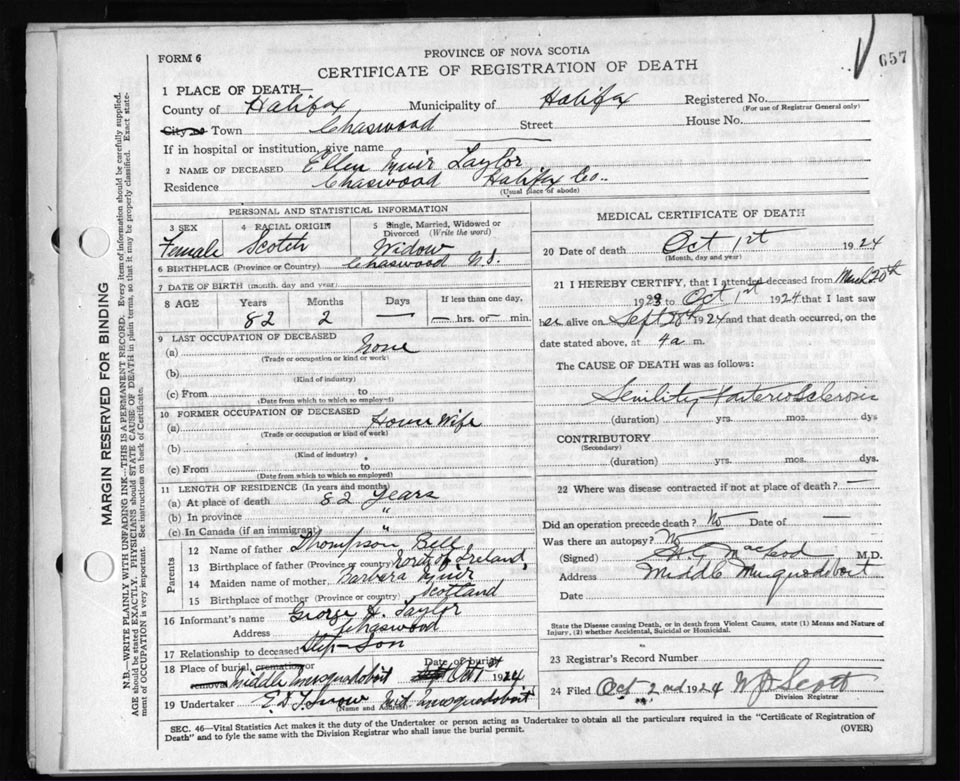 657
FORM 6
PROVINCE OF NOVA SCOTIA
CERTIFICATE OF REGISTRATION OF DEATH
1 PLACE OF DEATH—
County of Halifax, Municipality of Halifax Registered No.
(For use of Registrar General only)
City or Town Chaswood Street House No.
If in hospital or institution, give name
2 NAME OF DECEASED Ellen Muir Taylor
Residence Chaswood Halifax Co..
(Usual place of abode)
PERSONAL AND STATISTICAL INFORMATION
3 SEX 4 RACIAL ORIGIN 5 Single, Married, Widowed or Divorced (Write the word)
Female Scotch Widow
6 BIRTHPLACE (Province or Country) Chaswood N.S.
7 DATE OF BIRTH (month, day and year)
8 AGE Years Months Days If less than one day,
82 2 — — hrs. or — min.
9 LAST OCCUPATION OF DECEASED
(a) None
(Trade or occupation or kind of work)
(b)
(Kind of industry)
(c) From to
(Date from which to which so employed)
10 FORMER OCCUPATION OF DECEASED
(a) House Wife
(Trade or occupation or kind of work)
(b)
(Kind of industry)
(c) From to
(Date from which to which so employed)
11 LENGTH OF RESIDENCE (In years and months)
(a) At place of death 82 Years
(b) In province "
(c) In Canada (if an immigrant) "
Parents
12 Name of father Thompson Bell
13 Birthplace of father (Province or country) North of Ireland,
14 Maiden name of mother Barbara Muir
15 Birthplace of mother (Province or country) Scotland
16 Informant's name George H. Taylor
Address Chaswood
17 Relationship to deceased Step-Son
18 Place of burial, cremation or removal Middle Musquodoboit Date of burial Oct 1924
19 Undertaker E D Snow Mid. Musquodoboit
(Name and Address)
MEDICAL CERTIFICATE OF DEATH
20 Date of death Oct 1st 1924
(Month, day and year)
21 I HEREBY CERTIFY, that I attended deceased from March 20th
1923 to Oct 1st 1924 that I last saw
her alive on Sept 28th 1924 and that death occurred, on the
date stated above, at 4 a m.
The CAUSE OF DEATH was as follows:
Senility + arterio Sclerosis
(duration) yrs. mos. dys
CONTRIBUTORY
(Secondary)
(duration) yrs. mos. dys.
22 Where was disease contracted if not at place of death? —
Did an operation precede death? No Date of —
Was there an autopsy? No
(Signed) MacLeod M.D.
Address Middle Musquodoboit
Date
State the Disease causing Death, or in death from Violent Causes, state (1) Means and Nature of Injury, (2) whether Accidental, Suicidal or Homicidal.
23 Registrar's Record Number
24 Filed Oct 2nd 1924 Scott
Division Registrar
SEC. 46—Vital Statistics Act makes it the duty of the Undertaker or person acting as Undertaker to obtain all the particulars required in the "Certificate of Registration of
Death" and to fyle the same with the Division Registrar who shall issue the burial permit. (OVER)
MARGIN RESERVED FOR BINDING
N.B.—WRITE PLAINLY WITH UNFADING INK—THIS IS A PERMANENT RECORD. Every item of information should be carefully supplied.
AGE should be stated EXACTLY. PHYSICIANS should STATE CAUSE OF DEATH in plain terms, so that it may be properly classified. Exact state-
ment of OCCUPATION is very important. See instructions on back of Certificate.